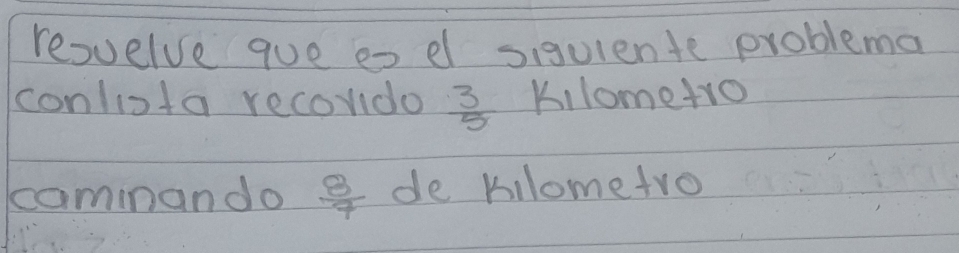 resuelve que es el siguiente problema
conlista recorido 3/5 Kilometro
caminando 8/7 de Kilometro